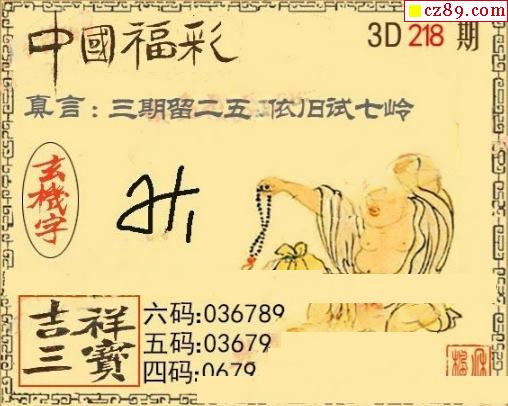 cz89.com
中國福彩
3D 218 期
真言：三期留二五..依旧试七岭
玄機字
吉祥三寶
六码:036789
五码:03679
四码:0679